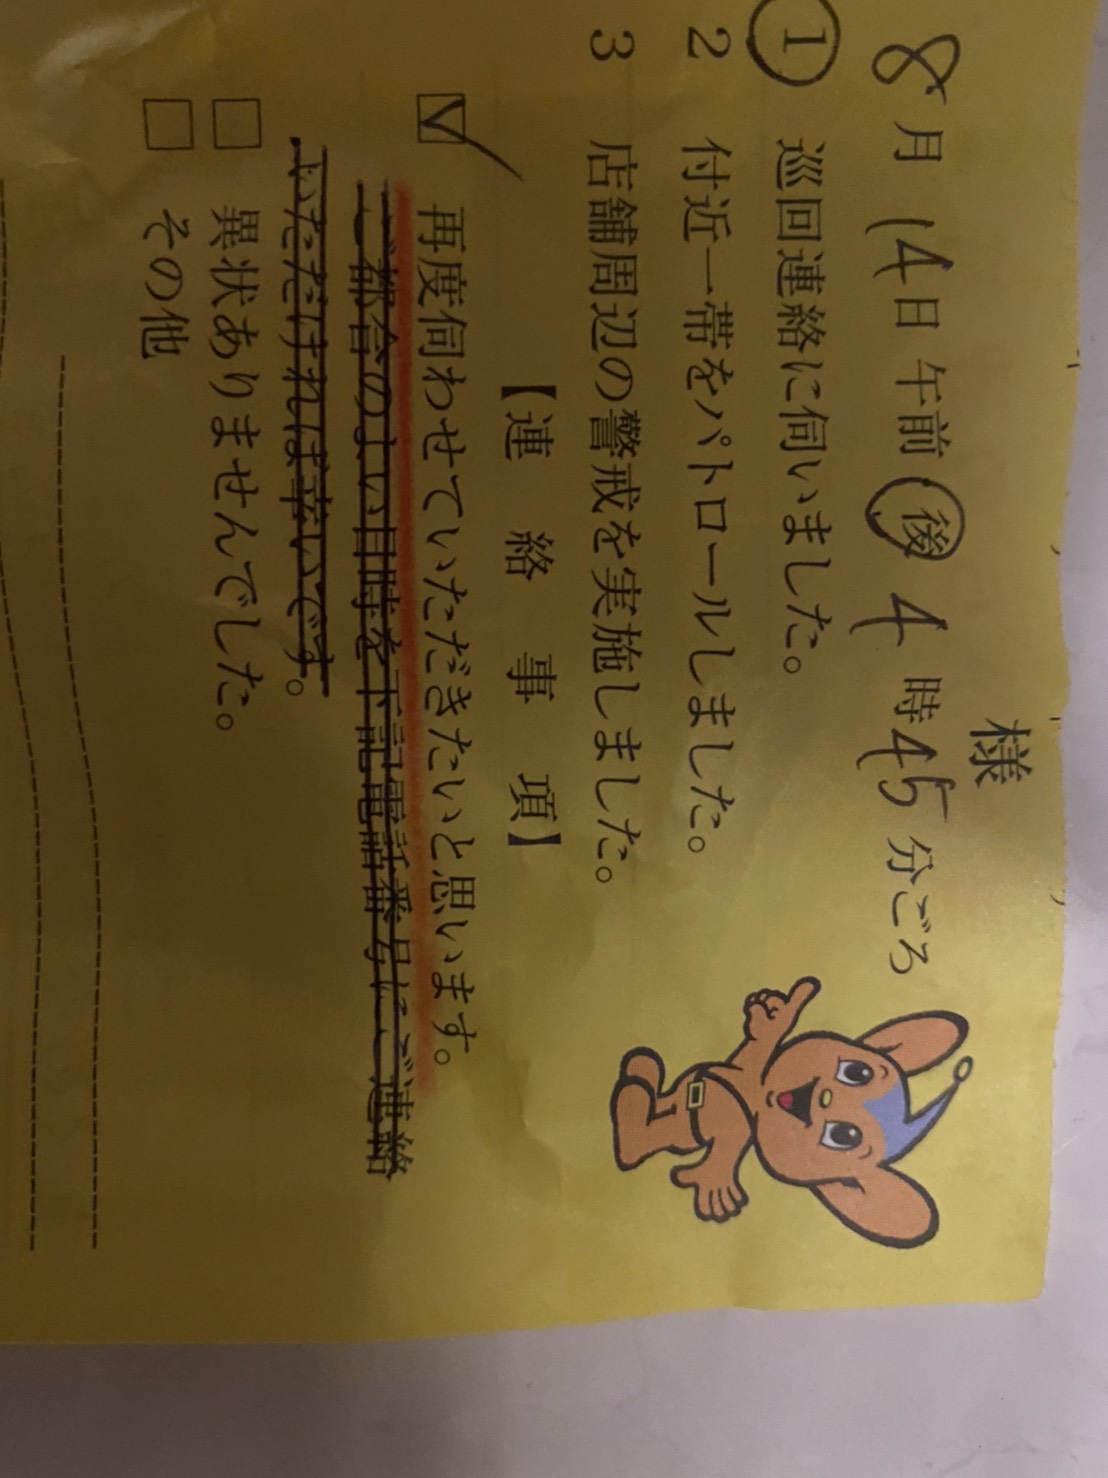 様
8月14日 午前 後 4時45分ごろ
1 巡回連絡に伺いました。
2 付近一帯をパトロールしました。
3 店舗周辺の警戒を実施しました。
【連絡事項】
☑ 再度伺わせていただきたいと思います。
ご都合のよい日時を下記電話番号にご連絡
いただければ幸いです。
□ 異状ありませんでした。
□ その他